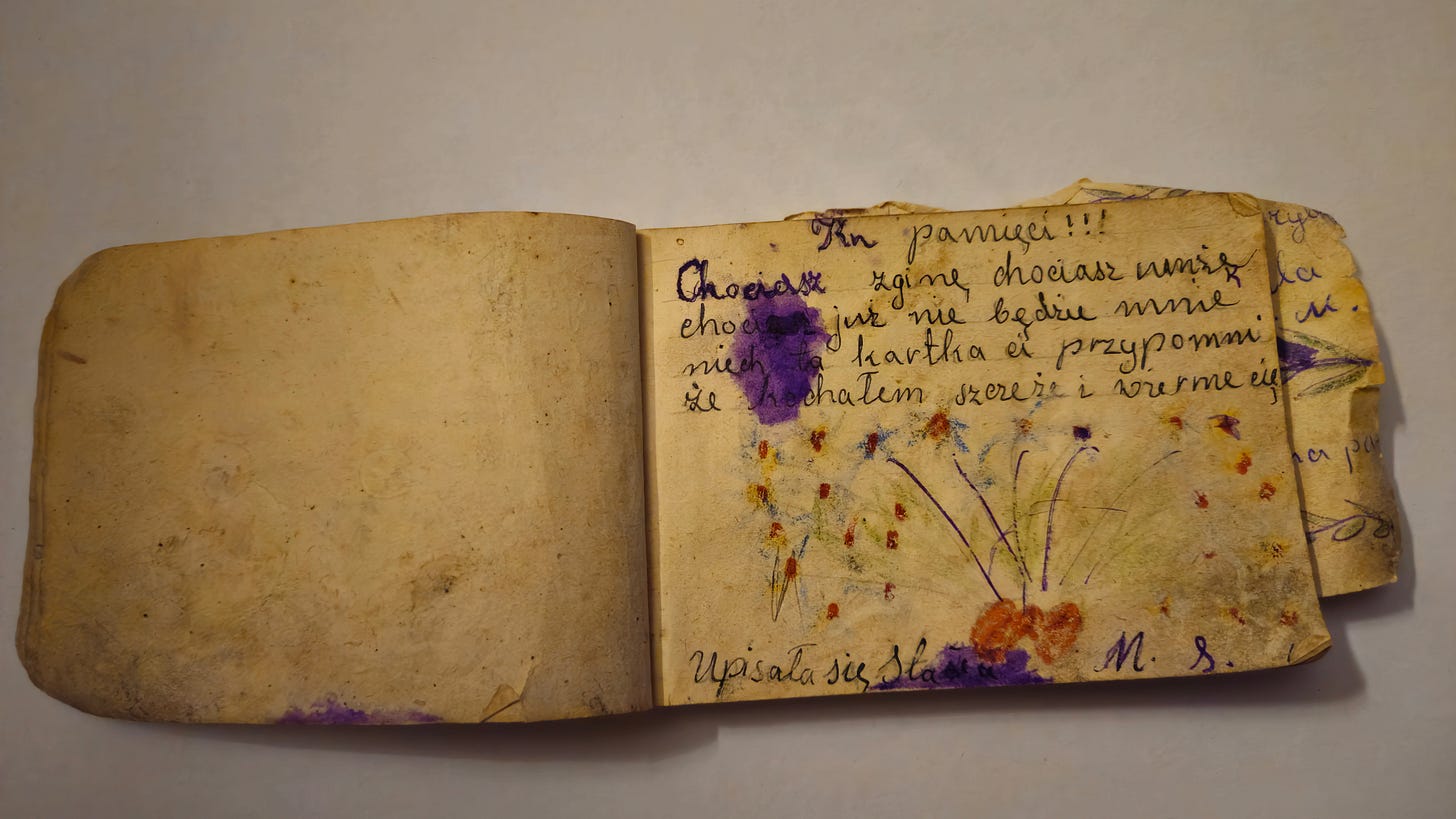 Ku pamięci!!!
Chociasz zginę chociasz umżę
chociasz już nie będzie mnie
niech ta kartka ci przypomni
że kochałem szczeże i wiernie cię
Upisała się Sława M. S.
la
M.
na pa